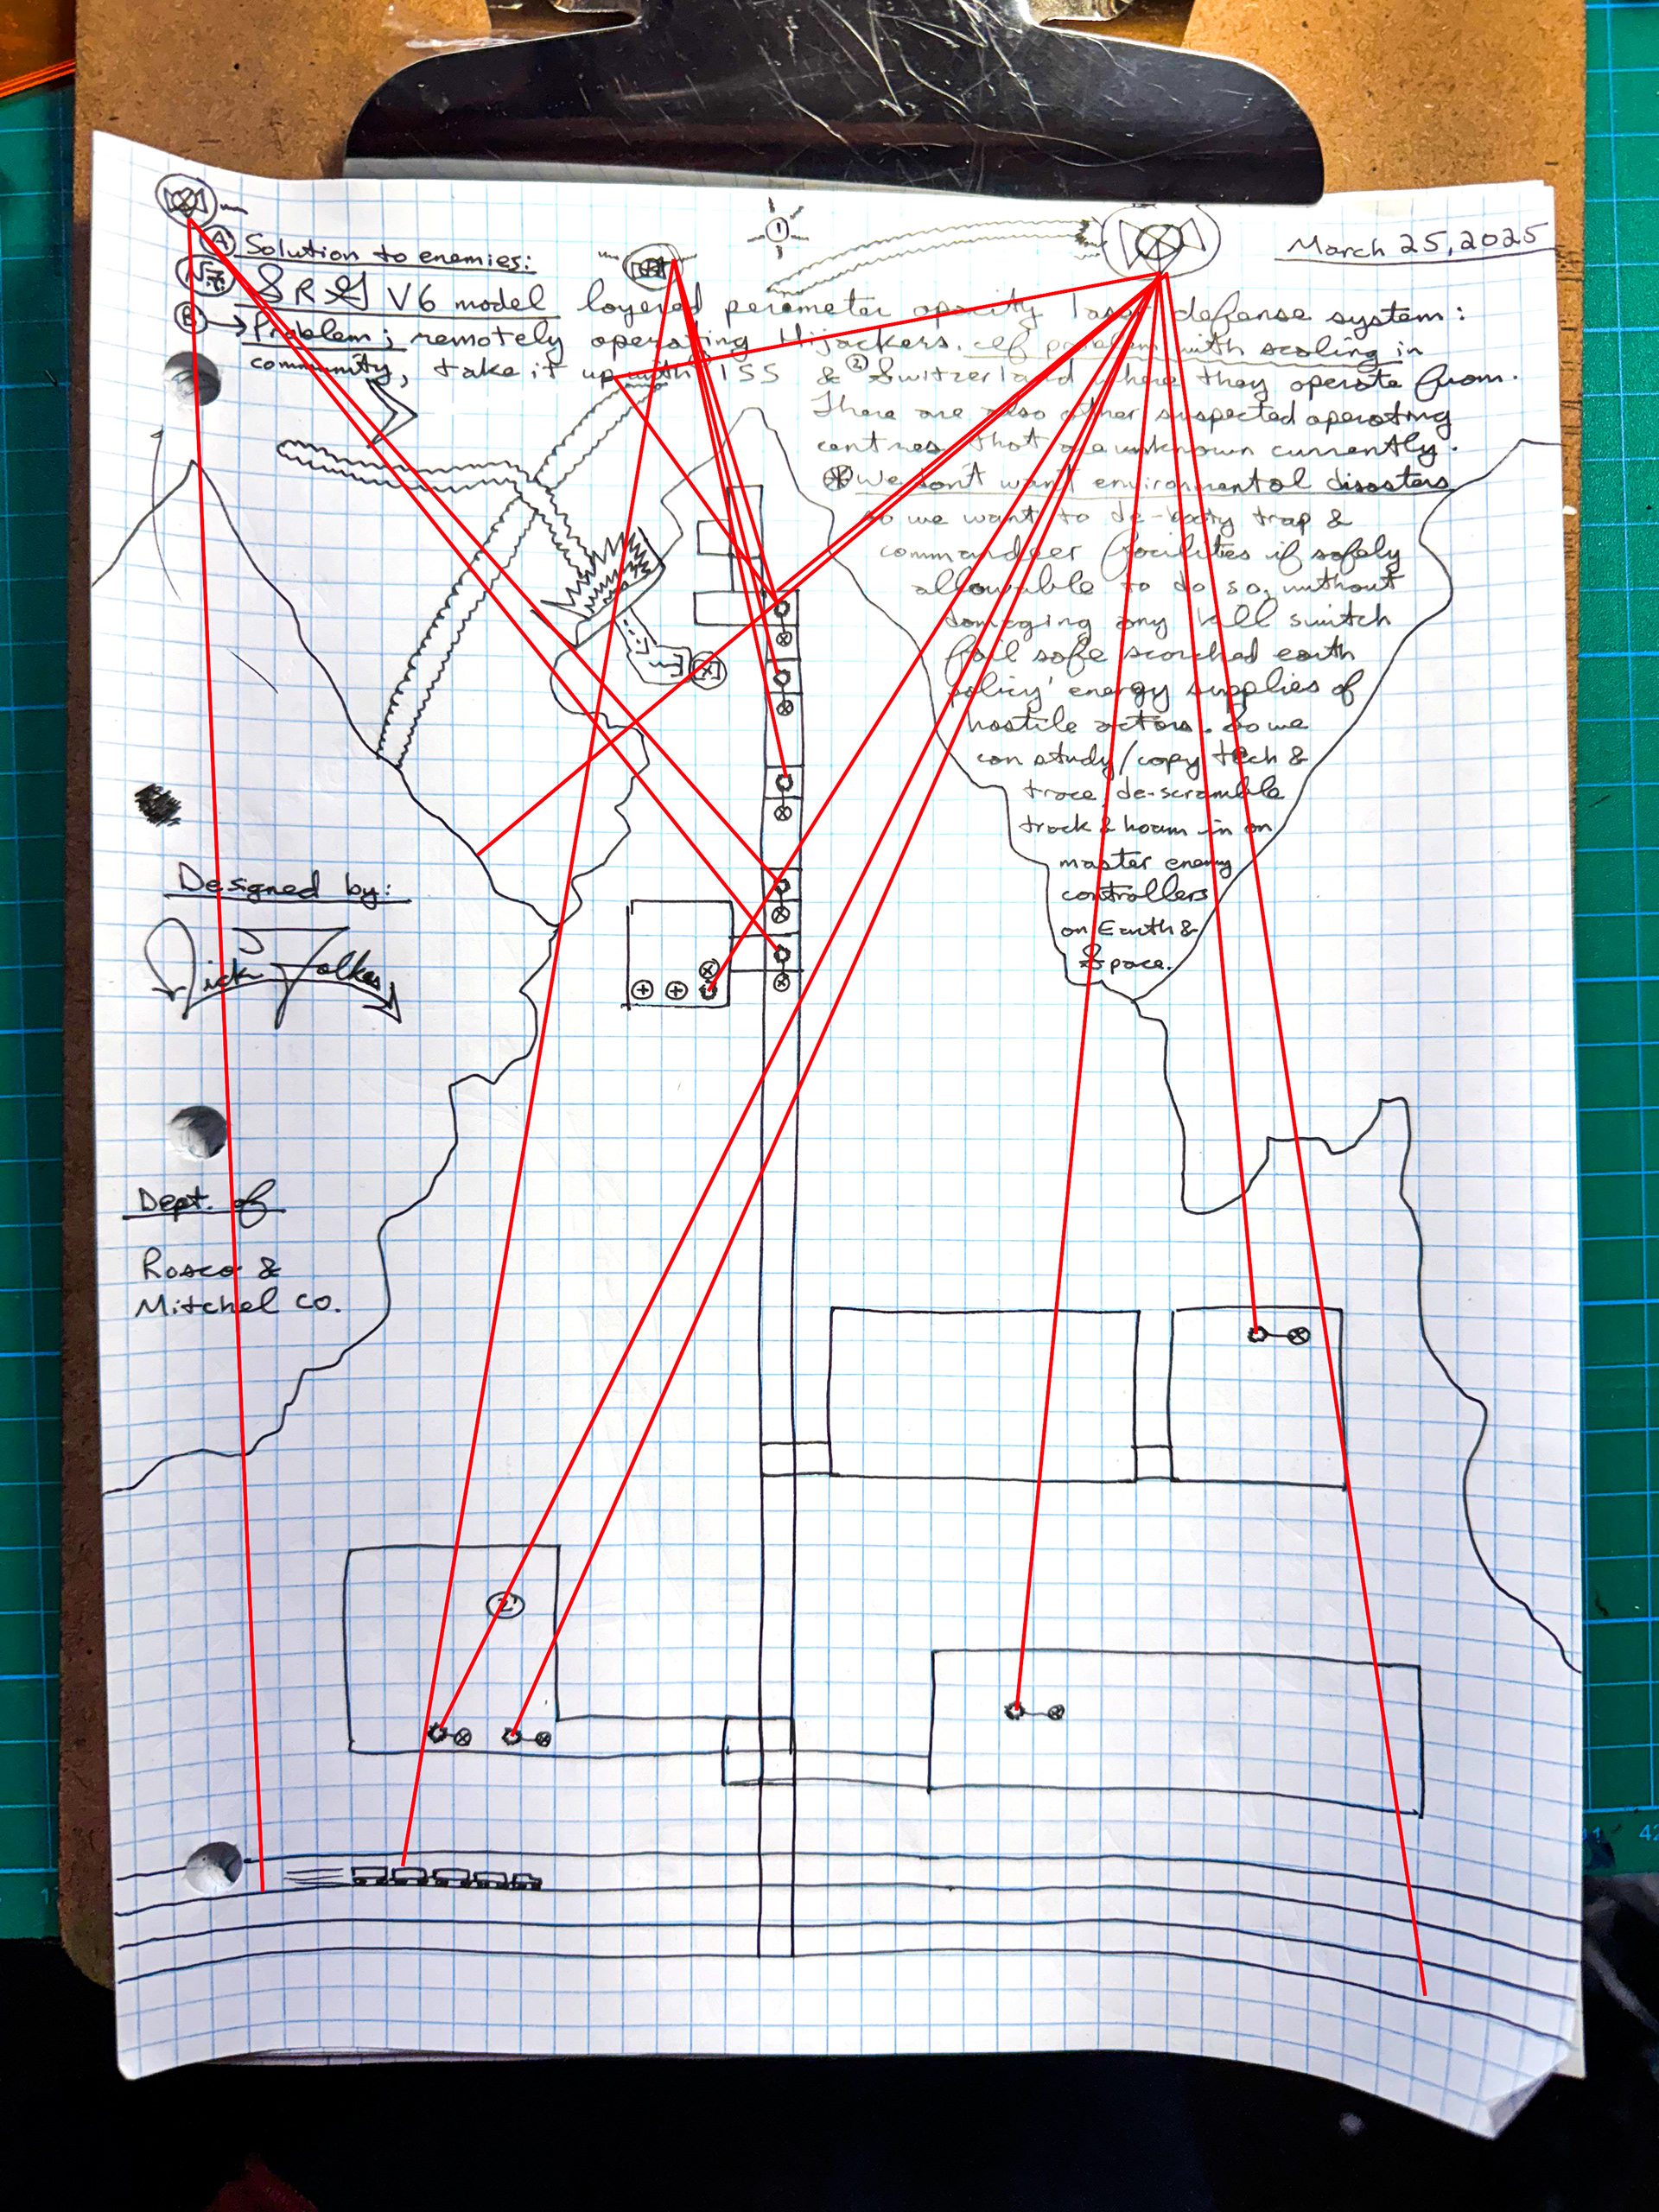 March 25, 2025
(A) Solution to enemies:
V6 model layered perimeter opacity laser defense system:
(B) → Problem; remotely operating Hijackers. If problem with scaling in
community, take it up with ISS & (2) Switzerland where they operate from.
There are also other suspected operating
centres that are unknown currently.
We don't want environmental disasters
so we want to de-booty trap &
commandeer facilities if safely
allowable to do so, without
damaging any kill switch
fail safe scorched earth
policy' energy supplies of
hostile actors. So we
can study/copy tech &
trace, de-scramble
track & hoam in on
master enemy
controllers
on Earth &
Space.
Designed by:
Dept. of
Rosco &
Mitchel co.
42